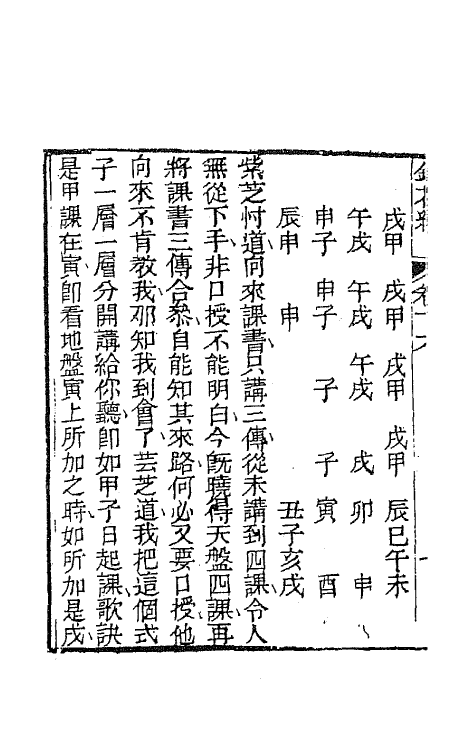 戌甲 戌甲 戌甲 戌甲 辰巳午未
午戌 午戌 午戌 戌 卯 申
申子 申子 子 子 寅 酉
辰申 申 丑子亥戌
紫芝忖道向來課書只講三傳從未講到四課令人
無從下手非口授不能明白今旣曉得天盤四課再
將課書三傳合叅自能知其來路何必又要口授他
向來不肯教我那知我到會了芸芝道我把這個式
子一層一層分開講給你聽卽如甲子日起課歌訣
是甲課在寅卽看地盤寅上所加之時如所加是戌